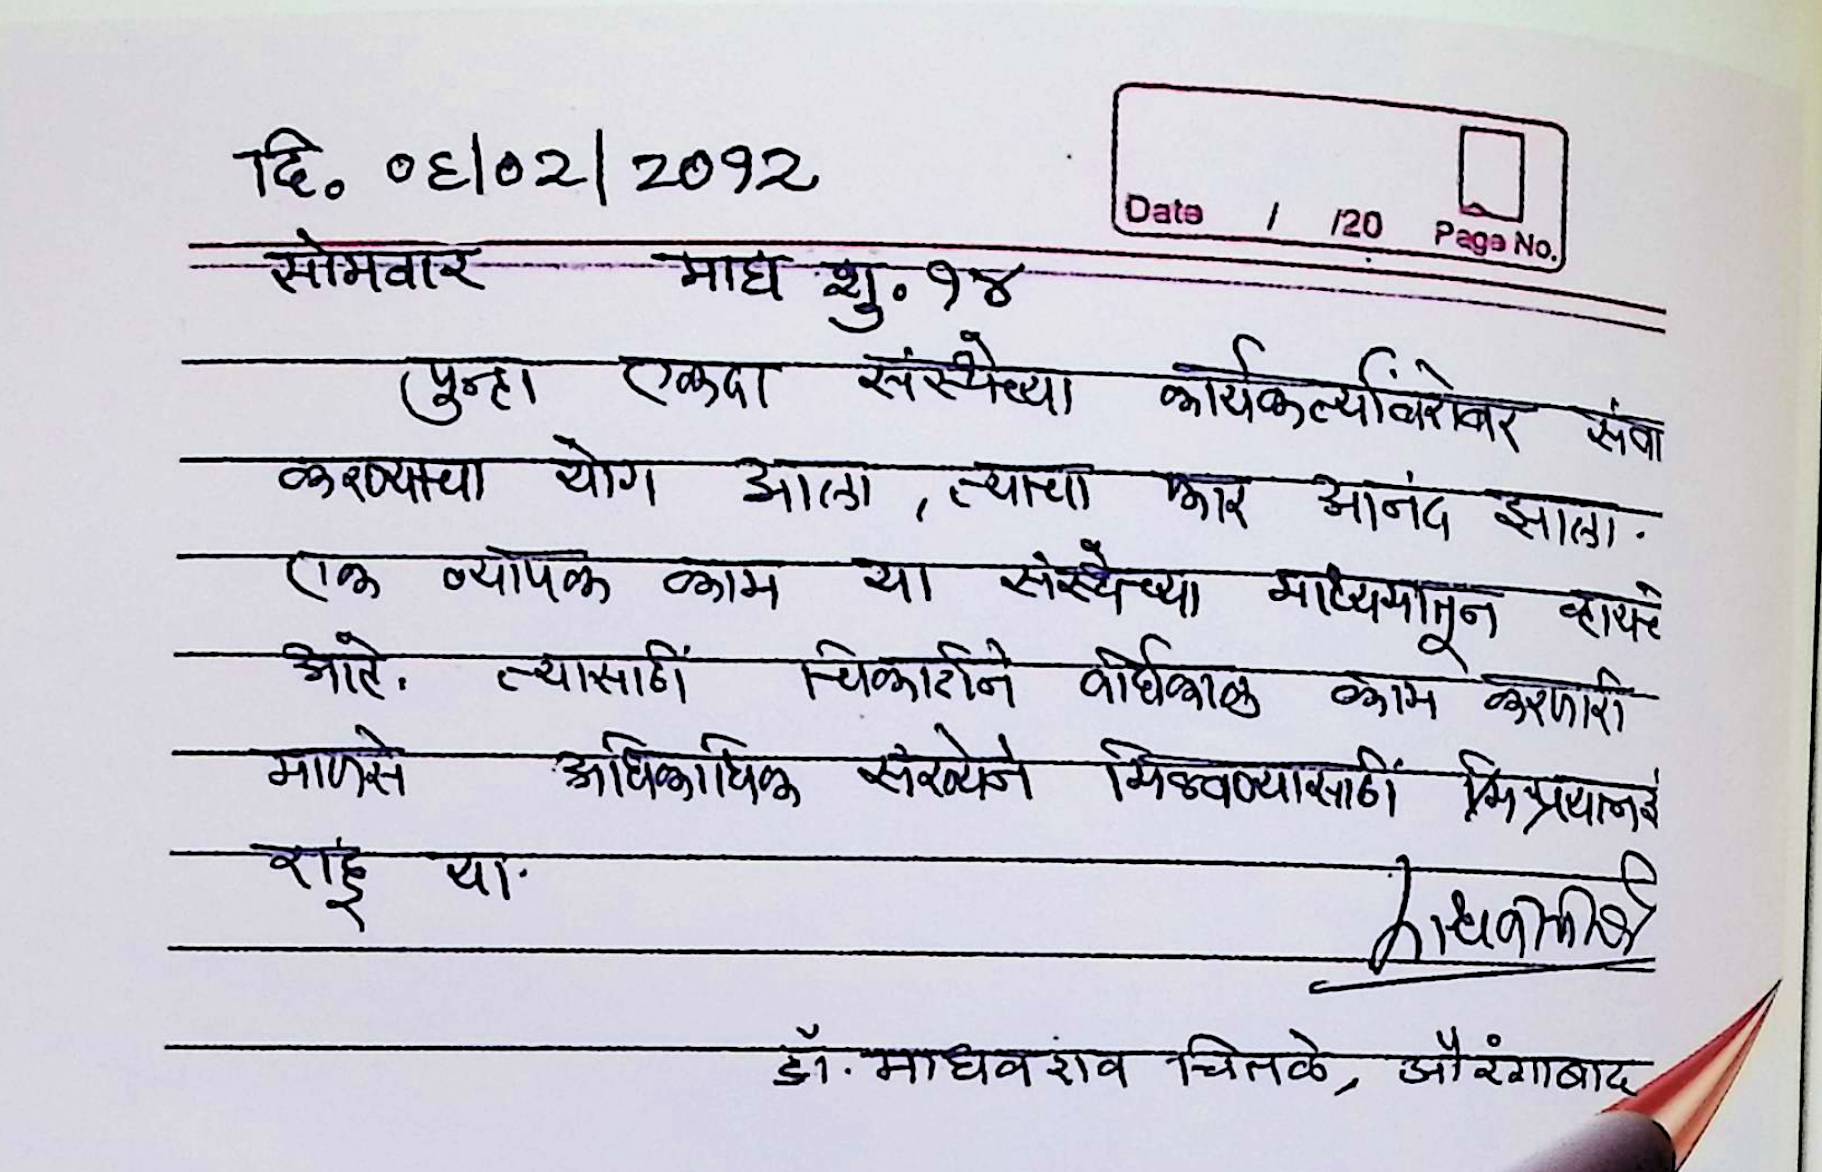 दि. ०६/०२/२०१२
Date / /20 Page No.
सोमवार माघ शु. १४
पुन्हा एकदा संस्थेच्या कार्यकर्त्यांबरोबर संवा
करण्याचा योग आला, त्याचा फार आनंद झाला.
एक व्यापक काम या संस्थेच्या माध्यमातून व्हायचे
आहे. त्यासाठी चिकाटीने दीर्घकाळ काम करणारी
माणसे अधिकाधिक संख्येने मिळवण्यासाठी
राहू या.
डॉ. माधवराव चितळे, औरंगाबाद